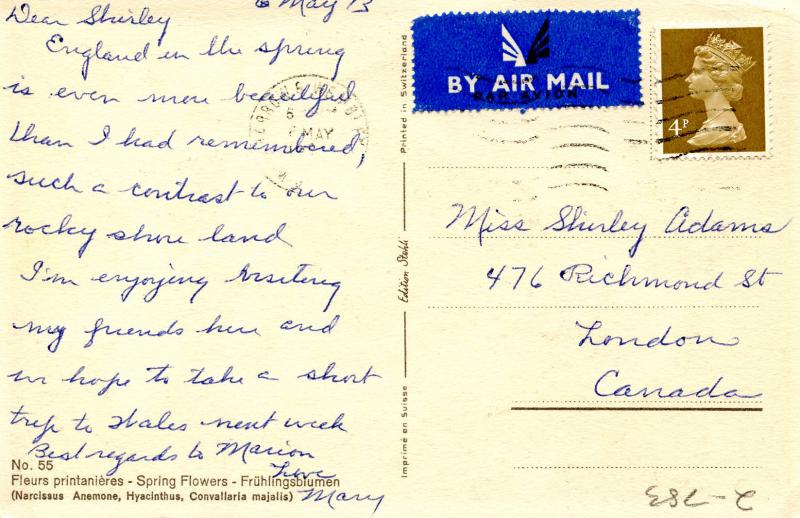 6 May 73
Dear Shirley
England in the spring
is even more beautiful
than I had remembered,
such a contrast to our
rocky shore land
I'm enjoying visiting
my friends here and
we hope to take a short
trip to Wales next week
Best regards to Marion
Love
Mary
No. 55
Fleurs printanières - Spring Flowers - Frühlingsblumen
(Narcissus Anemone, Hyacinthus, Convallaria majalis)
Printed in Switzerland
Edition Stehli
Imprimé en Suisse
BY AIR MAIL
PAR AVION
4P
MAY
Miss Shirley Adams
476 Richmond St
London
Canada